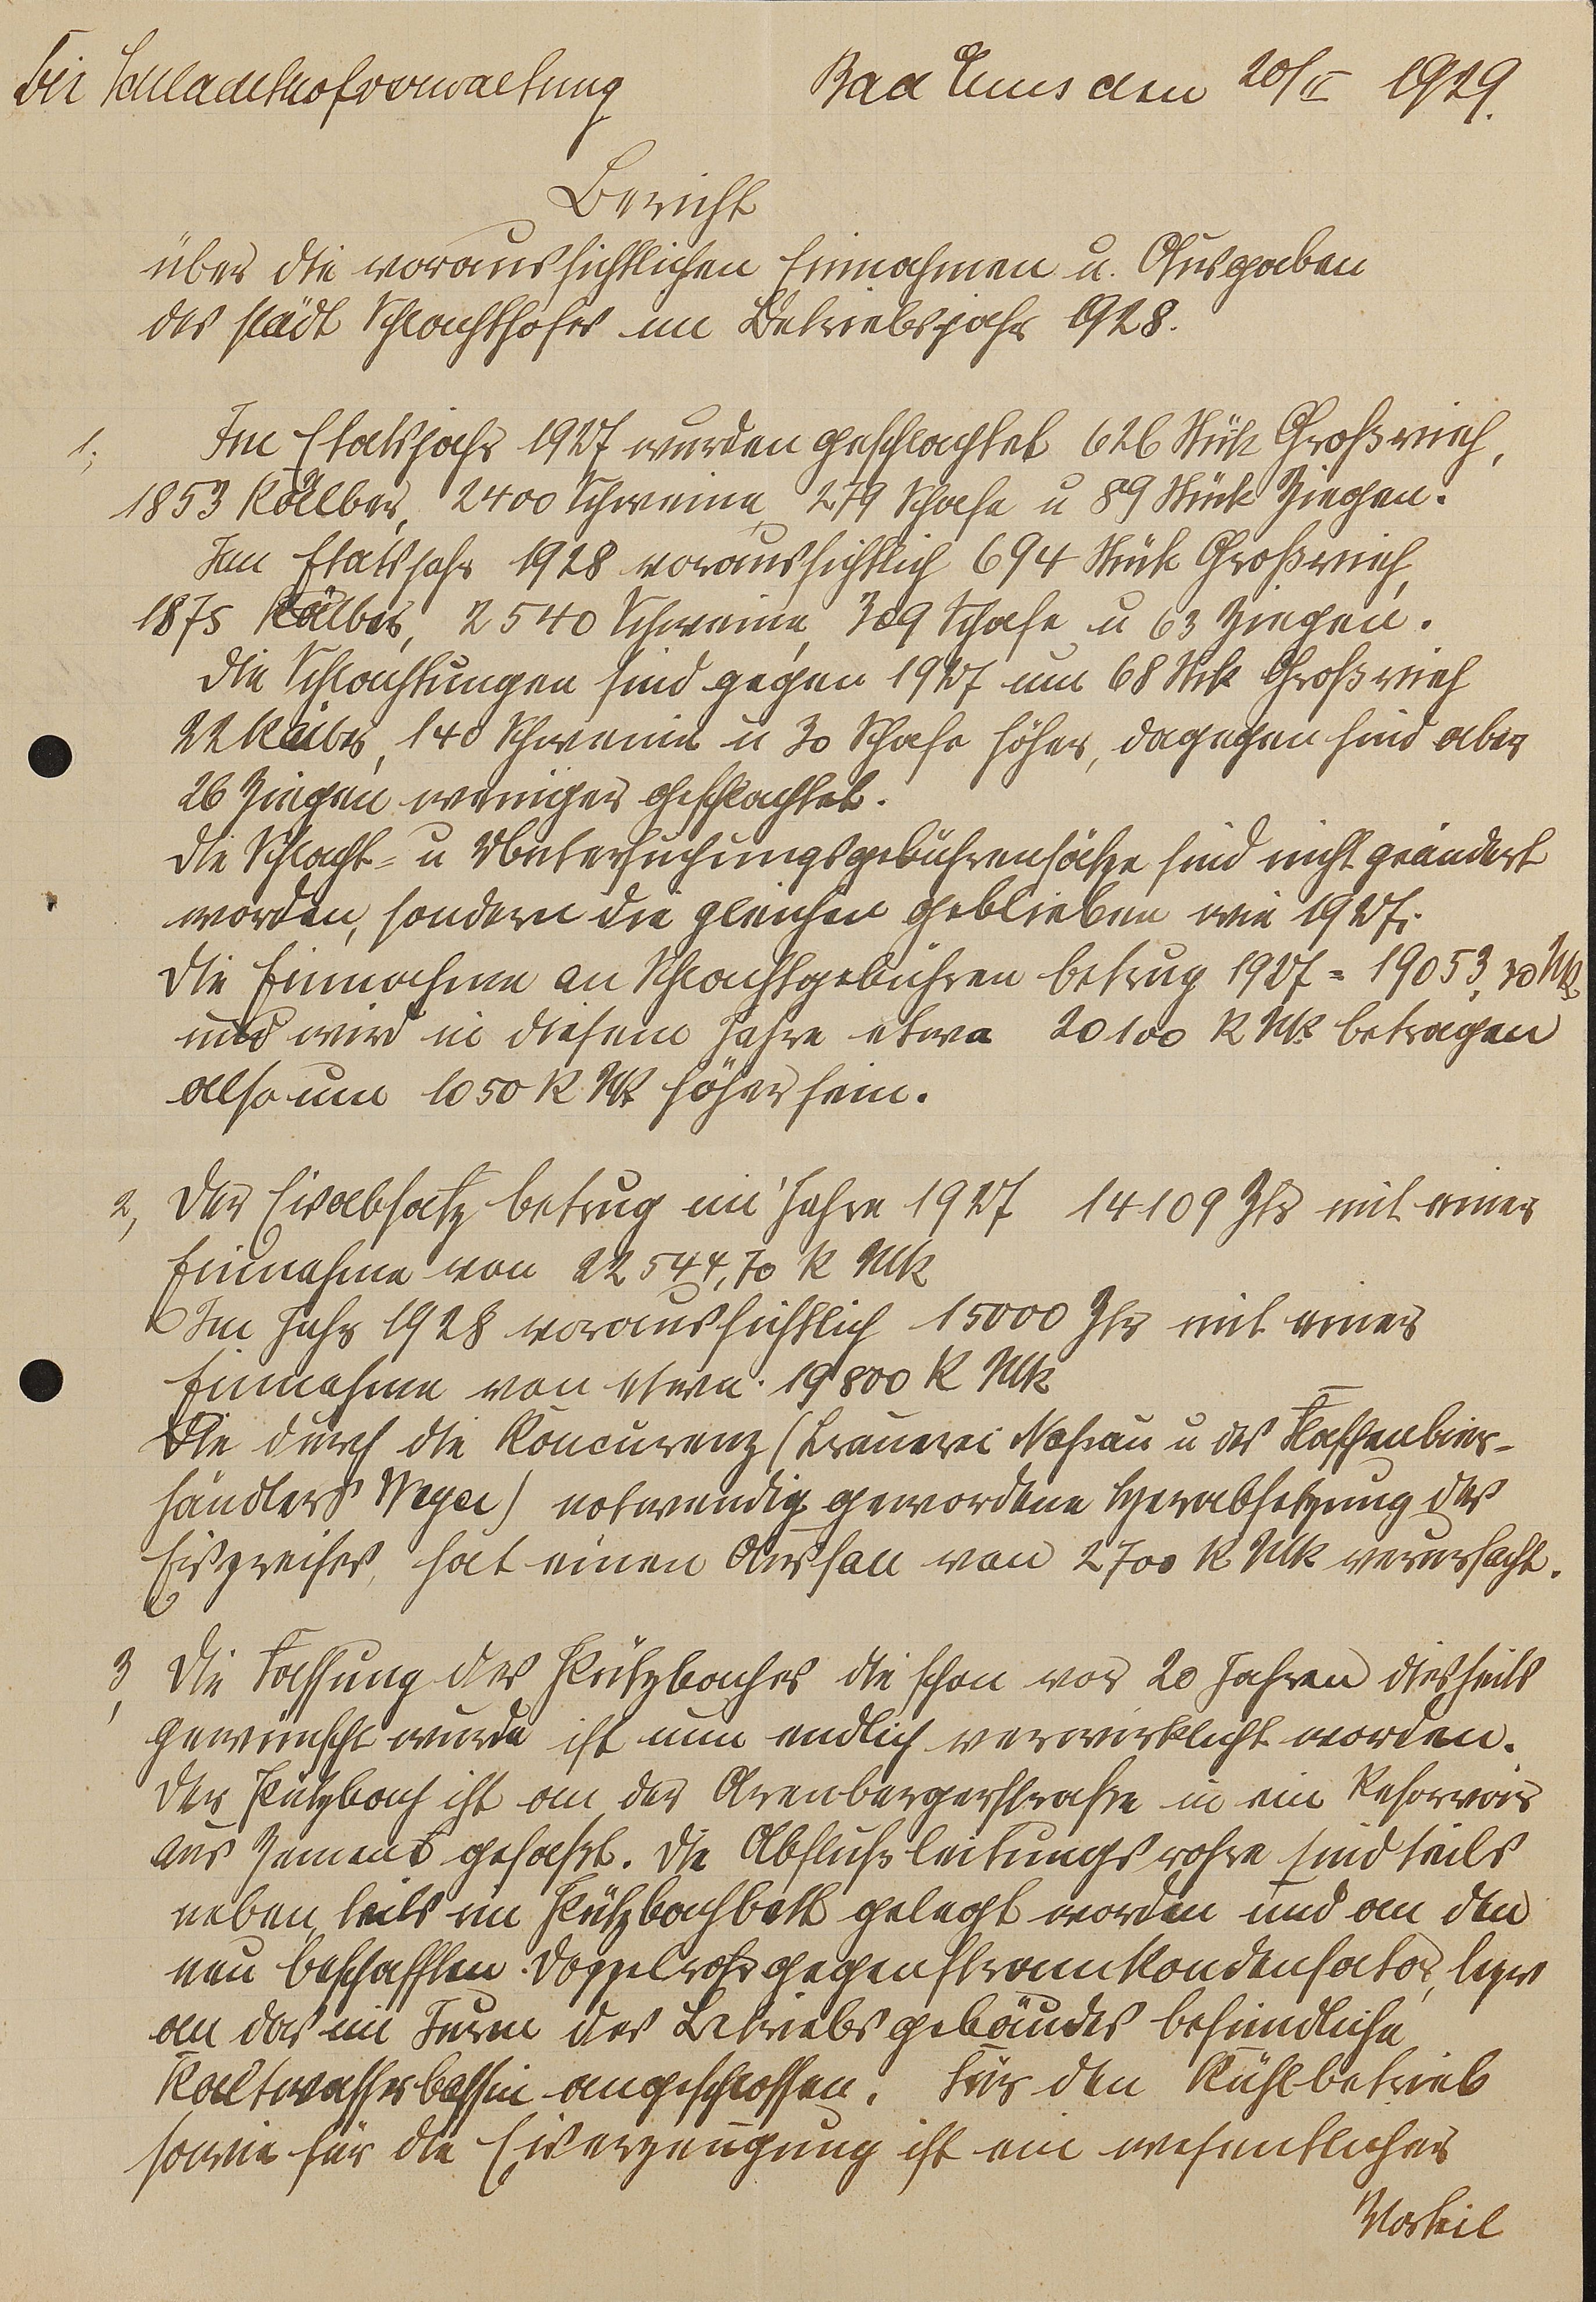 Die Schlachthofverwaltung
Bad Ems den 20/II 1929.
Bericht
über die voraussichtlichen Einnahmen u. Ausgaben
des städt Schlachthofes im Betriebsjahr 1928.
1, Im Etatsjahr 1927 wurden geschlachtet 626 Stück Großvieh,
1853 Kälber, 2400 Schweine, 279 Schafe u 89 Stück Ziegen.
Im Etatsjahr 1928 voraussichtlich 694 Stück Großvieh,
1875 Kälber, 2540 Schweine, 309 Schafe u 63 Ziegen.
Die Schlachtungen sind gegen 1927 um 68 Stck Großvieh
22 Kälber, 140 Schweine u 30 Schafe höher, dagegen sind aber
26 Ziegen weniger geschlachtet.
Die Schlacht- u Untersuchungsgebührensätze sind nicht geändert
worden, sondern die gleichen geblieben wie 1927.
Die Einnahme an Schlachtgebühren betrug 1927 = 19053,30 Mk
und wird in diesem Jahre etwa 20100 R Mk betragen
also um 1050 R Mk höher sein.
2, Der Eisabsatz betrug im Jahre 1927 14109 Ztr mit einer
Einnahme von 22544,70 R Mk
Im Jahr 1928 voraussichtlich 15000 Ztr mit einer
Einnahme von etwa 19800 R Mk
Die durch die Koncurenz (Brauerei Nassau u des Flaschenbier-
händlers) notwendig gewordene Herabsetzung des
Eispreises, hat einen Ausfall von 2700 R Mk verursacht.
3, Die Fassung des Pützbaches die schon vor 20 Jahren diesseits
gewünscht wurde ist nun endlich verwirklicht worden.
Der Pützbach ist an der Arenbergerstraße in ein Reservoir
aus Zement gefaßt. Die Abflußleitungsrohre sind teils
neben, teils im Pützbachbett gelegt worden und an den
neu beschafften Doppelrohrgegenstromkondensator, bezw
an das im Turm des Betriebsgebäudes befindliche
Kaltwasserbassin angeschlossen. Für den Kühlbetrieb
sowie für die Eiserzeugung ist ein wesentlicher
Vorteil